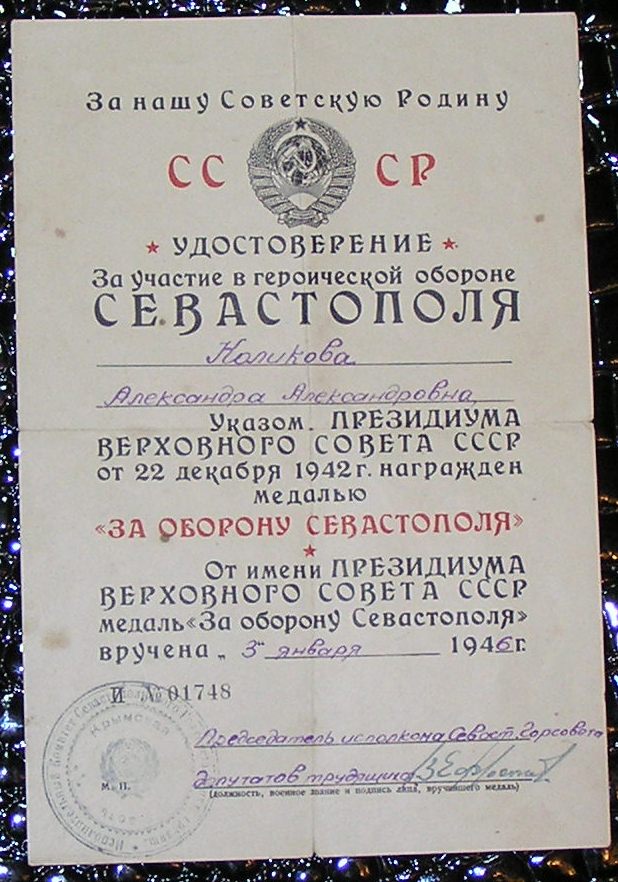 За нашу Советскую Родину
СССР
УДОСТОВЕРЕНИЕ
За участие в героической обороне
СЕВАСТОПОЛЯ
Каликова
Александра Александровна
Указом ПРЕЗИДИУМА
ВЕРХОВНОГО СОВЕТА СССР
от 22 декабря 1942 г. награжден
медалью
«ЗА ОБОРОНУ СЕВАСТОПОЛЯ»
От имени ПРЕЗИДИУМА
ВЕРХОВНОГО СОВЕТА СССР
медаль «За оборону Севастополя»
вручена „ 3" января 1946 г.
И №01748
Председатель исполкома Севаст. Горсовета
депутатов трудящихся
М. П.
(должность, военное звание и подпись лица, вручившего медаль)
Крымская
Исполнительный Комитет